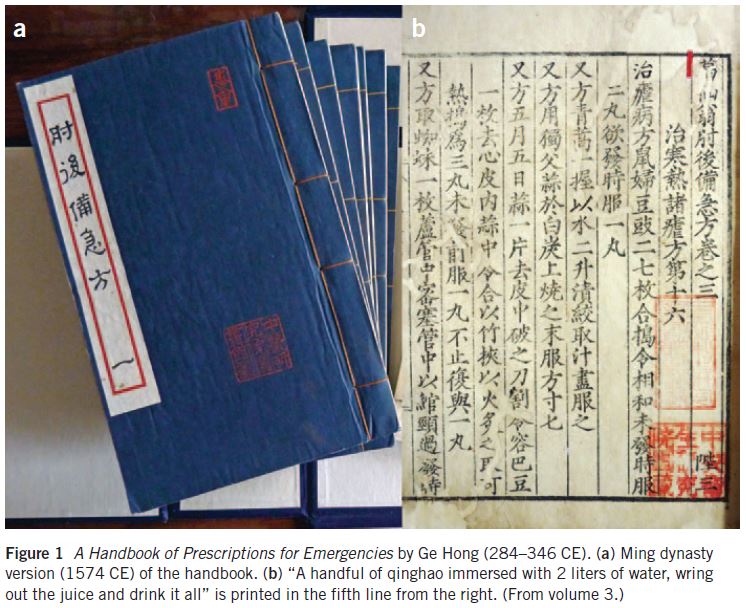 a
肘後備急方 一
b
葛仙翁肘後備急方卷之三
治寒熱諸瘧方第十六
治瘧病方鼠婦豆豉二七枚合搗令相和未發時服
二丸欲發時服一丸
又方青蒿一握以水二升漬絞取汁盡服之
又方用獨父蒜於白炭上燒之末服方寸七
又方五月五日蒜一片去皮中破之刀割令容巴豆
一枚去心皮內蒜中令合以竹挾以火炙之取可
熱搗爲三丸未發前服一丸不止復與一丸
又方取蜘蛛一枚蘆管中密塞管中以綰頸過發時
陛三
Figure 1 A Handbook of Prescriptions for Emergencies by Ge Hong (284–346 CE). (a) Ming dynasty
version (1574 CE) of the handbook. (b) “A handful of qinghao immersed with 2 liters of water, wring
out the juice and drink it all” is printed in the fifth line from the right. (From volume 3.)